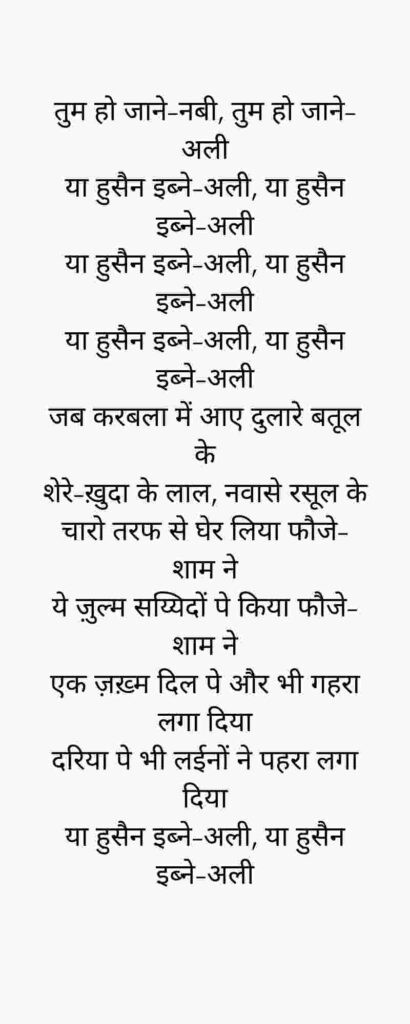 तुम हो जाने-नबी, तुम हो जाने-
अली
या हुसैन इब्ने-अली, या हुसैन
इब्ने-अली
या हुसैन इब्ने-अली, या हुसैन
इब्ने-अली
या हुसैन इब्ने-अली, या हुसैन
इब्ने-अली
जब करबला में आए दुलारे बतूल
के
शेरे-ख़ुदा के लाल, नवासे रसूल के
चारो तरफ से घेर लिया फौजे-
शाम ने
ये ज़ुल्म सय्यिदों पे किया फौजे-
शाम ने
एक ज़ख़्म दिल पे और भी गहरा
लगा दिया
दरिया पे भी लईनों ने पहरा लगा
दिया
या हुसैन इब्ने-अली, या हुसैन
इब्ने-अली